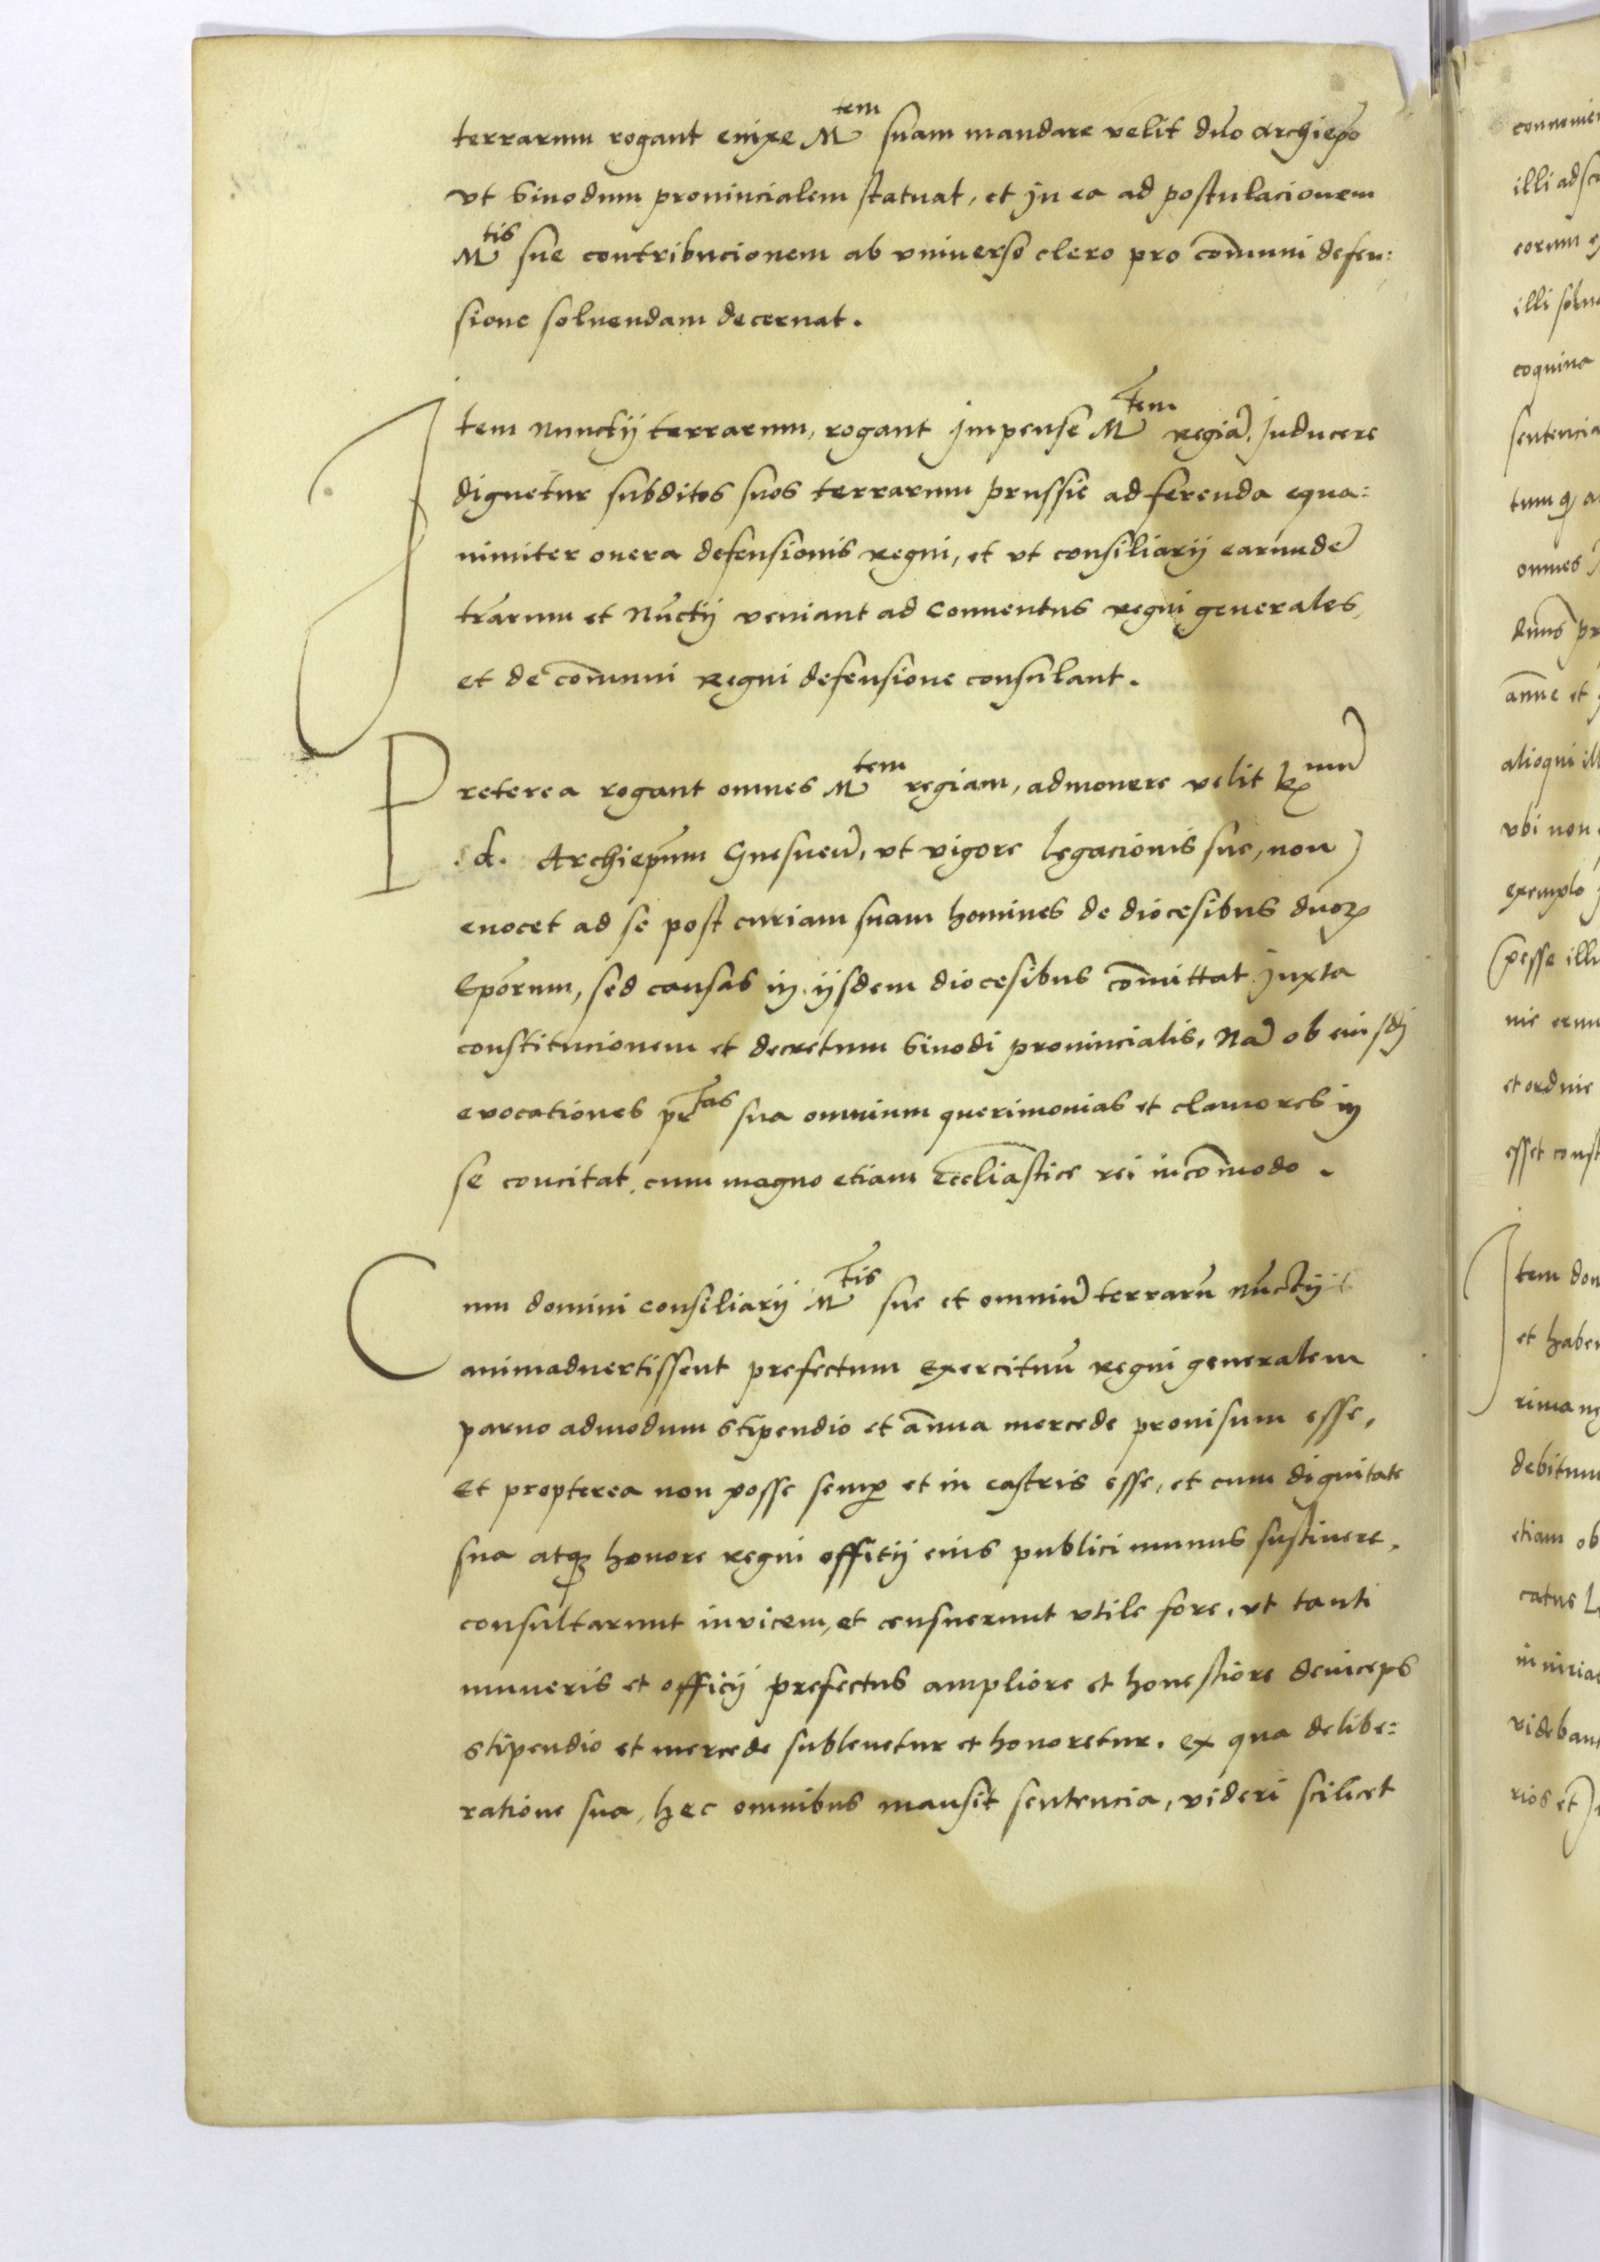 terrarum rogant enixe M^tem suam mandare velit dno Archiepo
vt Sinodum prouincialem statuat, et in ea ad postulacionem
M^tis sue contribucionem ab vniuerso clero pro comuni defen:
sione soluendam decernat.
Item Nunctij terrarum, rogant impense M^tem regia, inducere
dignetur subditos suos terrarum prussie ad ferenda equa:
nimiter onera defensionis regni, et vt consiliarij earunde
trarum et Nuctij veniant ad Conuentus regni generales,
et de comuni regni defensione consulant.
Preterea rogant omnes M^tem regiam, admonere velit R^mu
d. Archiepum Gnesnen, vt vigore legacionis sue, non
euocet ad se post curiam suam homines de diocesibus dnorum
Eporum, sed causas in ijsdem diocesibus comittat iuxta
constitucionem et decretum Sinodi prouincialis, Na ob eiusdi
evocationes pr^tas sua omnium querimonias et clamores in
se concitat, cum magno etiam Eccliastice rei incomodo.
Cum domini consiliarij M^tis sue et omniu terraru nuctij
animaduertissent prefectum exercituu regni generalem
paruo admodum stipendio et anua mercede prouisum esse,
Et propterea non posse semp et in castris esse, et cum dignitate
sua atq honore regni offitij eius publici munus sustinere,
consultarunt invicem, et censuerunt vtile fore, vt tanti
muneris et officij prefectus ampliore et honestiore deinceps
stipendio et mercede subleuetur et honoretur. ex qua delibe:
ratione sua, hec omnibus mansit sentencia, videri scilicet
illi
eorum
illi
coquina
omnes
et
alioqui
vbi non
exemplo
posse
et
esset
Item
et
debitum
etiam ob
rios et